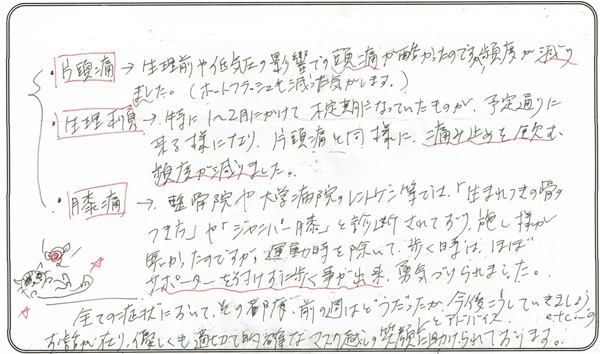 ・片頭痛 → 生理前や低気圧の影響での頭痛が酷かったのですが頻度が減り
ました。(ホットフラッシュも減った気がします。)
・生理不順 → 特に1〜2月にかけて不定期になっていたものが、予定通りに
来る様になり、片頭痛と同様に、痛み止めを飲む
頻度が減りました。
・膝痛 → 整骨院や大学病院のレントゲン等では、「生まれつきの骨の
つき方」や「ジャンパー膝」と診断されており、施し様が
無かったのですが、運動時を除いて、歩く時は、ほぼ
サポーターを付けずに歩く事が出来、勇気づけられました。
全ての症状において、その都度、前の週はどうだったか、今後こうしていきましょう etc...
お話が在り、優しくも適切で的確なアドバイスとマスク越しの笑顔に助けられております。